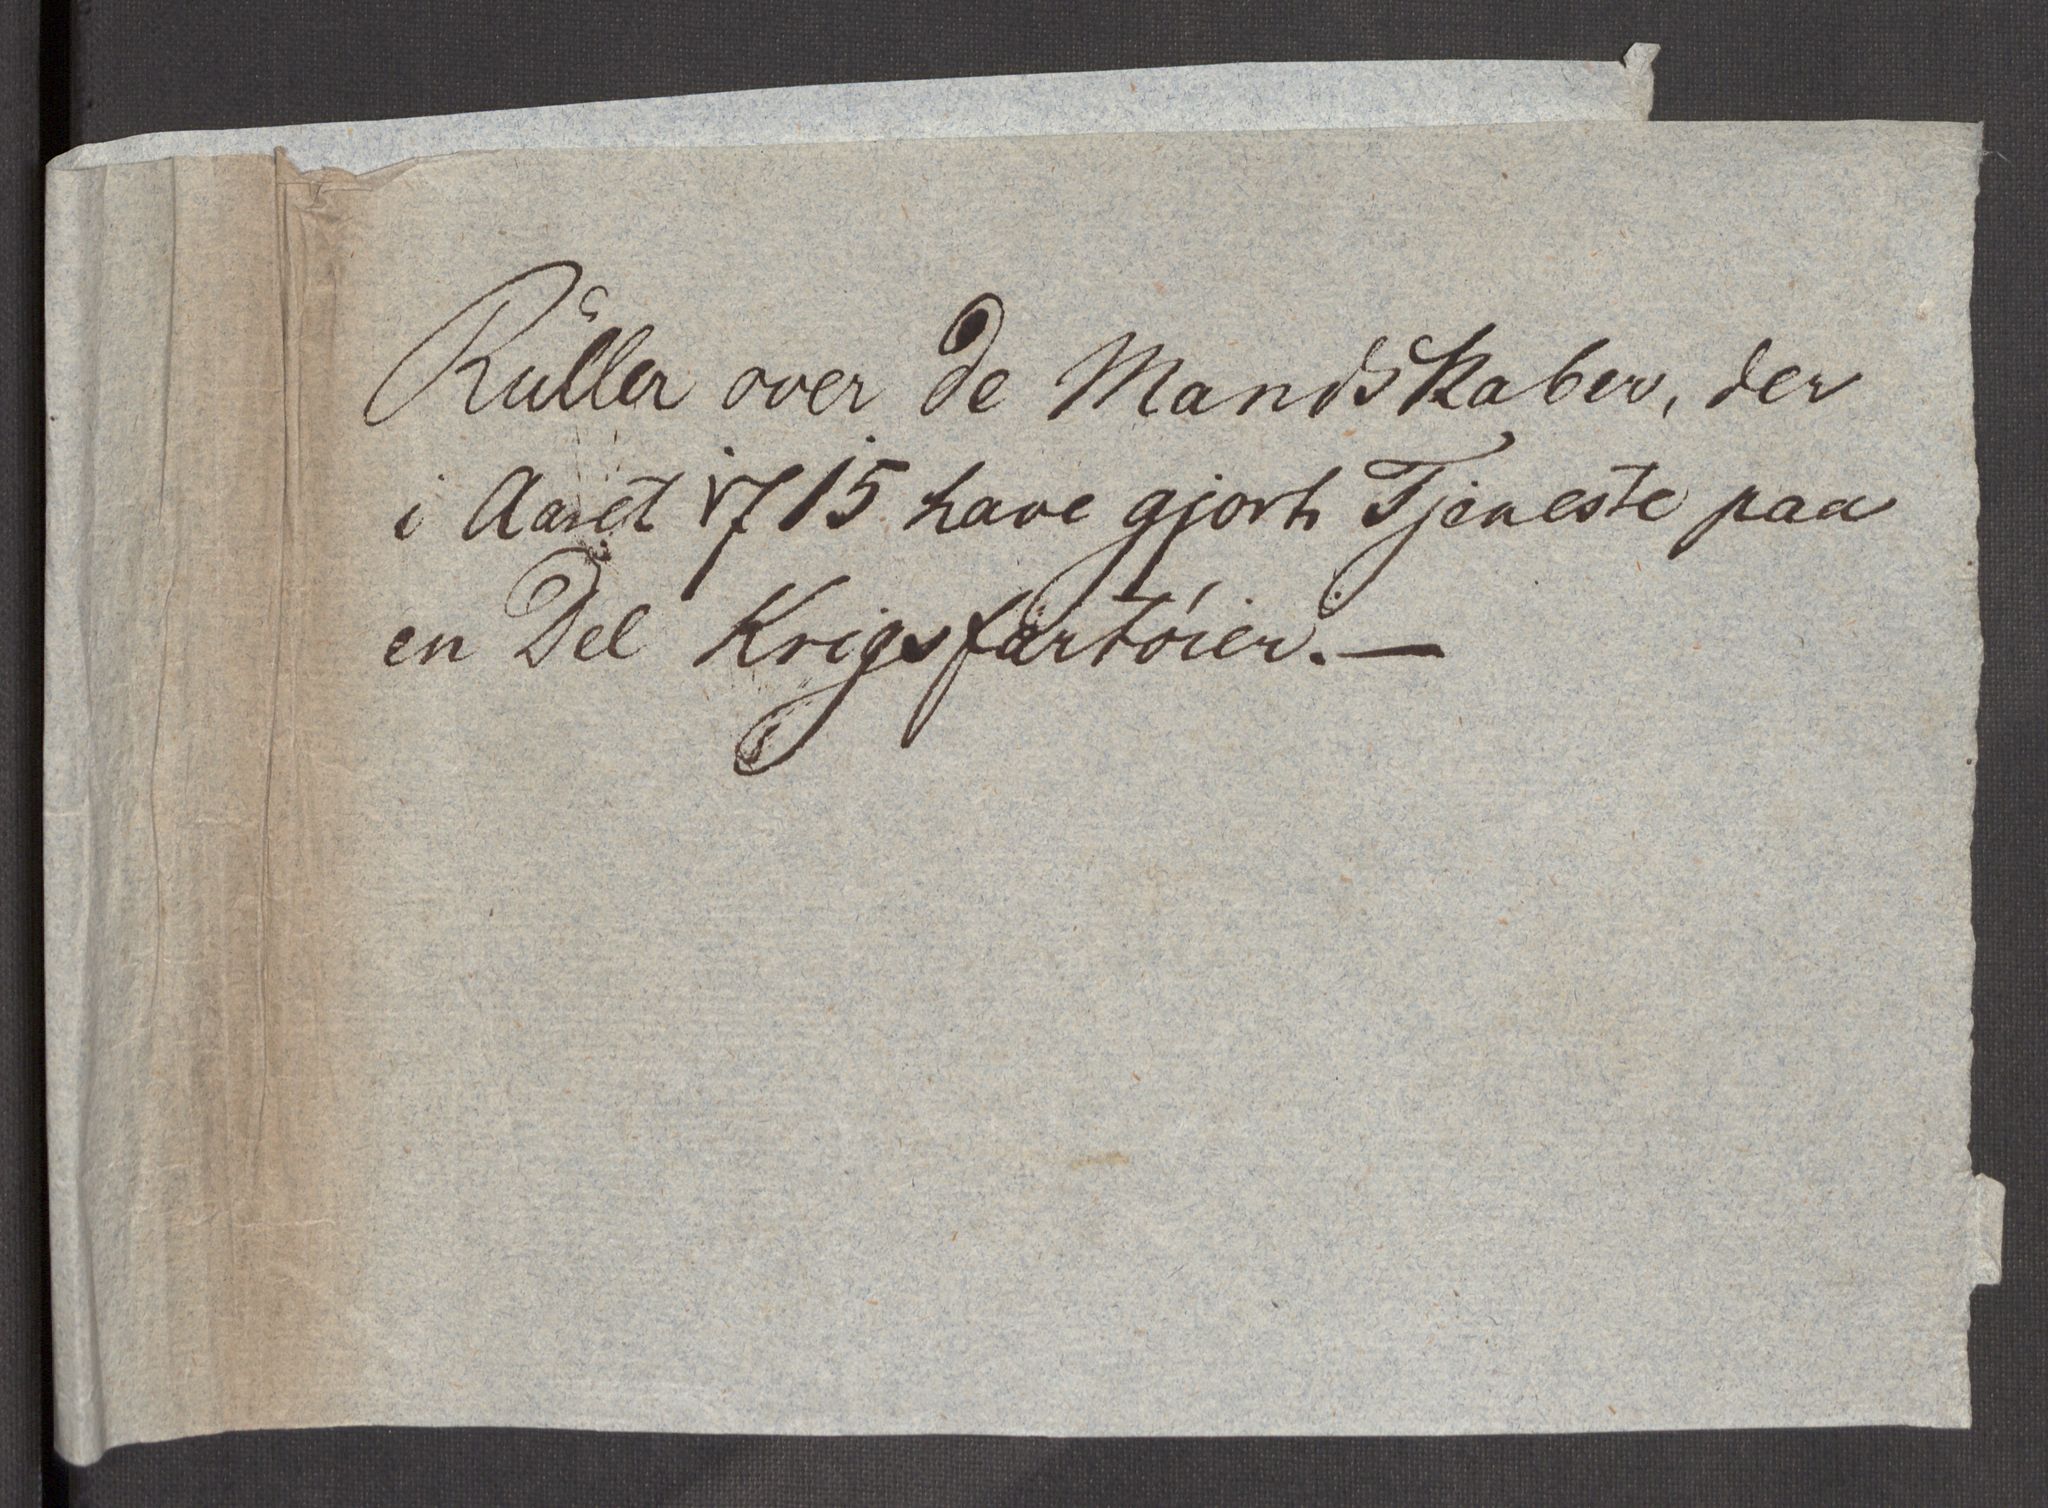 Ruller over de Mandskaber, der
i Aaret 1715 have gjort Tjeneste paa
en Del Krigsfartøier.—